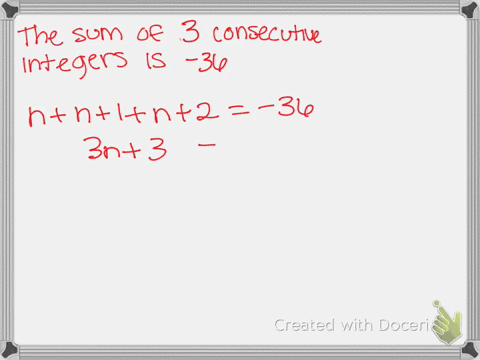 The sum of 3 consecutive
integers is -36
n+n+1+n+2=-36
3n+3 =
Created with Doceri